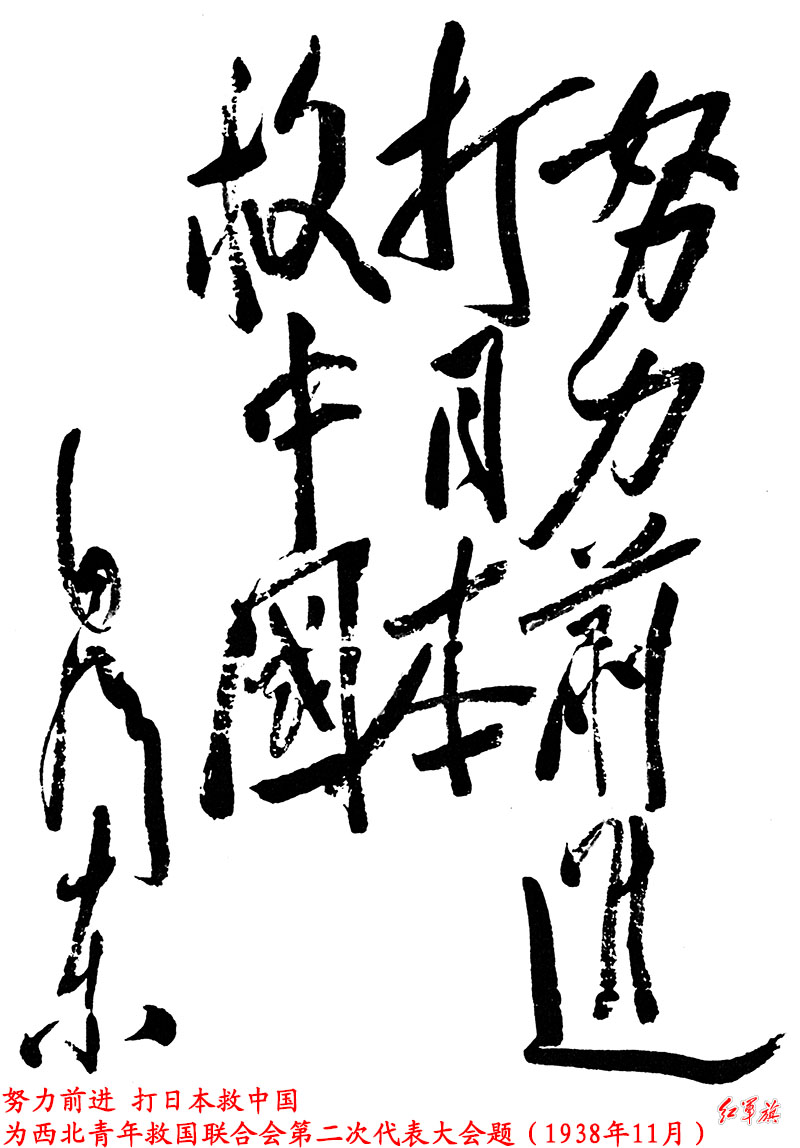 努力前進
打日本
救中國
毛泽东
努力前进 打日本救中国
为西北青年救国联合会第二次代表大会题（1938年11月）
红军旗